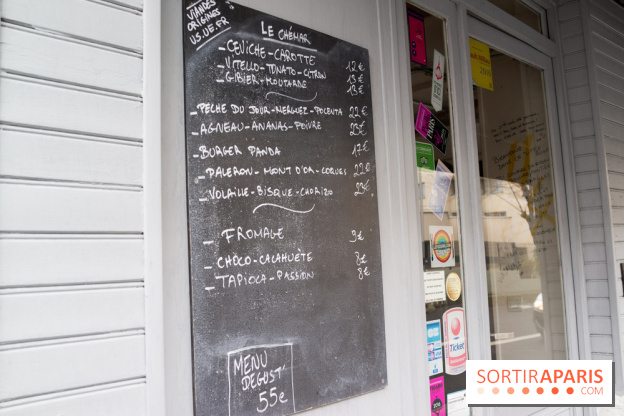 VIANDES
ORIGINES
US.UE.FR
LE CHÉMAR
- CEVICHE - CAROTTE 12€
- VITELLO - TONATO - CITRON 13€
- GIBIER - MOUTARDE 13€
- PÊCHE DU JOUR - MERGUEZ - POLENTA 22€
- AGNEAU - ANANAS - POIVRE 23€
- BURGER PANDA 17€
- PALERON - MONT D'OR - COQUES 22€
- VOLAILLE - BISQUE - CHORIZO 23€
- FROMAGE 9€
- CHOCO - CACAHUÈTE 8€
- TAPIOCA - PASSION 8€
MENU
DÉGUST'
55€
Ticket
SORTIRAPARIS
.COM